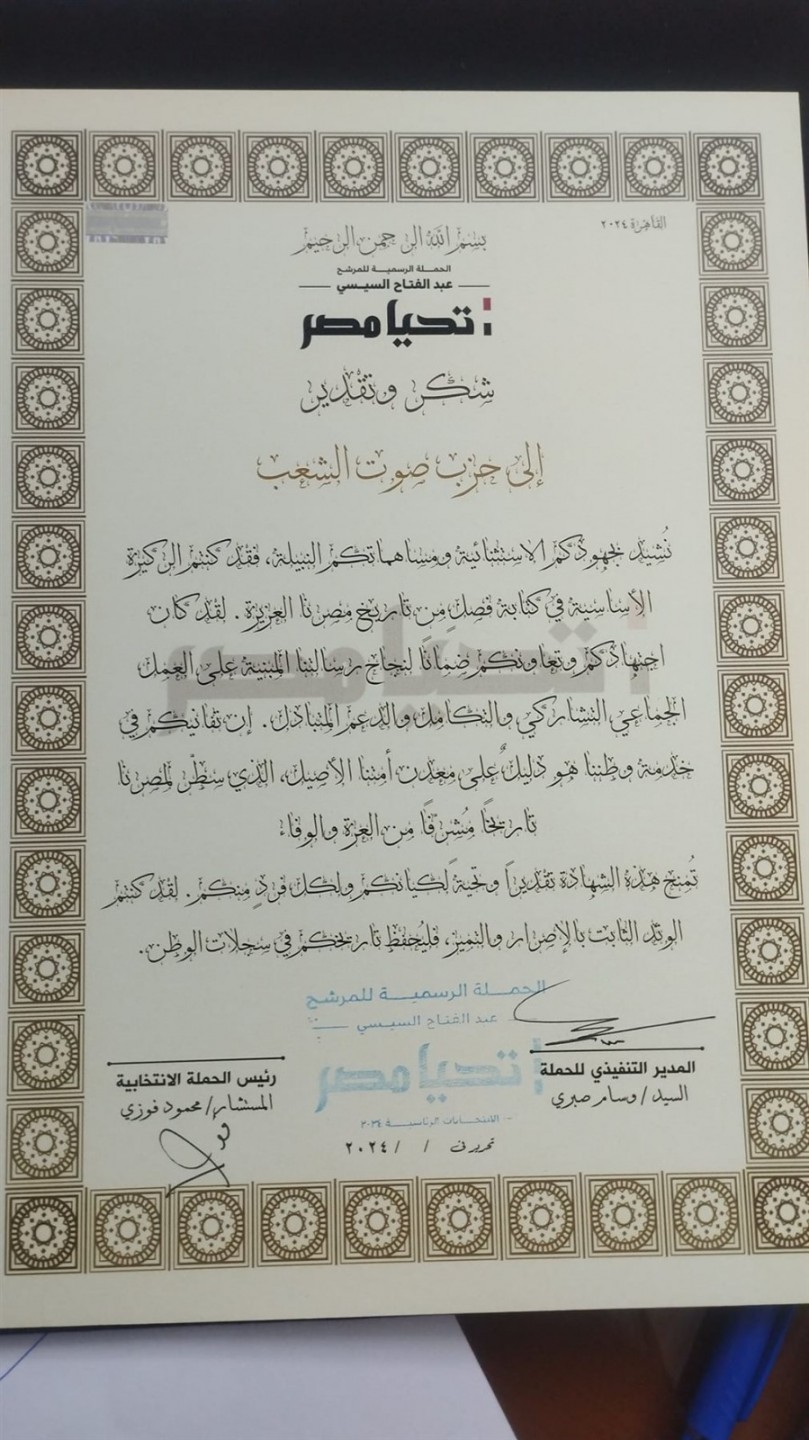 القاهرة ٢٠٢٤
بسم الله الرحمن الرحيم
الحملة الرسمية للمرشح
عبد الفتاح السيسي
تحيا مصر
شكر وتقدير
إلى حزب صوت الشعب
نُشيد بجهودكم الاستثنائية ومساهماتكم النبيلة، فقد كنتم الركيزة
الأساسية في كتابة فصلٍ من تاريخ مصرنا العزيزة. لقد كان
اجتهادكم وتعاونكم ضمانًا لنجاح رسالتنا المبنية على العمل
الجماعي التشاركي والتكامل والدعم المتبادل. إن تفانيكم في
خدمة وطننا هو دليلٌ على معدن أمتنا الأصيل، الذي سطّر لمصرنا
تاريخًا مُشرفًا من العزة والوفاء
تُمنح هذه الشهادة تقديراً وتحيةً لكيانكم ولكل فردٍ منكم. لقد كنتم
الوتد الثابت بالإصرار والتميز، فليُحفظ تاريخكم في سجلات الوطن.
الحملة الرسمية للمرشح
عبد الفتاح السيسي
تحيا مصر
الانتخابات الرئاسية ٢٠٢٤
المدير التنفيذي للحملة
السيد / وسام صبري
رئيس الحملة الانتخابية
المستشار/ محمود فوزي
تحريرا في / / ٢٠٢٤